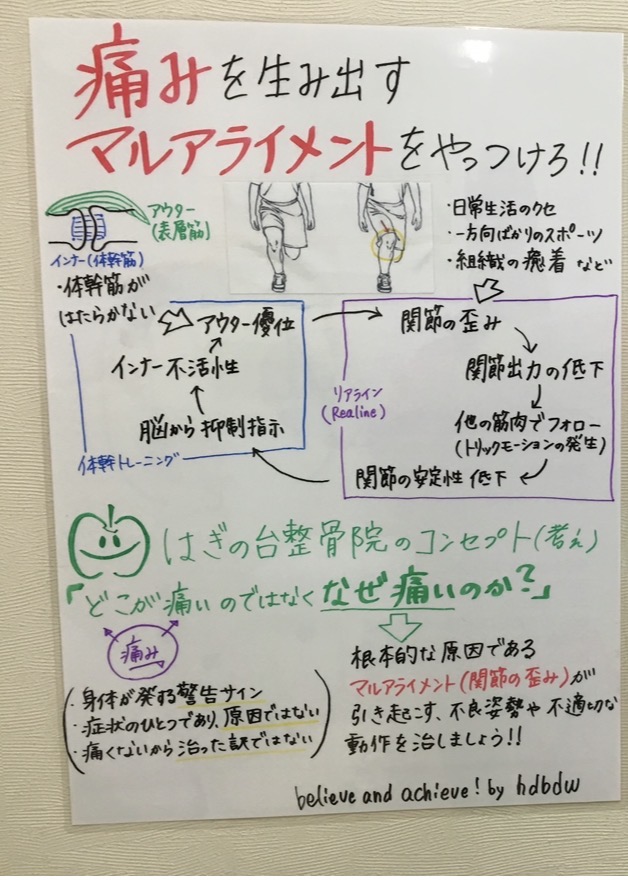 痛みを生み出す
マルアライメントをやっつけろ!!
アウター
(表層筋)
インナー(体幹筋)
・体幹筋が
はたらかない
・日常生活のクセ
・一方向ばかりのスポーツ
・組織の癒着 など
アウター優位
インナー不活性
脳から抑制指示
体幹トレーニング
関節の歪み
関節出力の低下
他の筋肉でフォロー
(トリックモーションの発生)
関節の安定性低下
リアライン
(Realine)
はぎの台整骨院のコンセプト(考え)
「どこが痛いのではなくなぜ痛いのか?」
痛み
・身体が発する警告サイン
・症状のひとつであり、原因ではない
・痛くないから治った訳ではない
根本的な原因である
マルアライメント(関節の歪み)が
引き起こす、不良姿勢や不適切な
動作を治しましょう!!
believe and achieve! by hdbdw